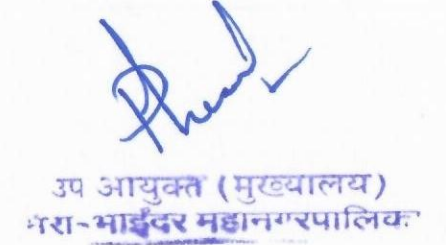 उप आयुक्त (मुख्यालय)
मिरा-भाईंदर महानगरपालिका